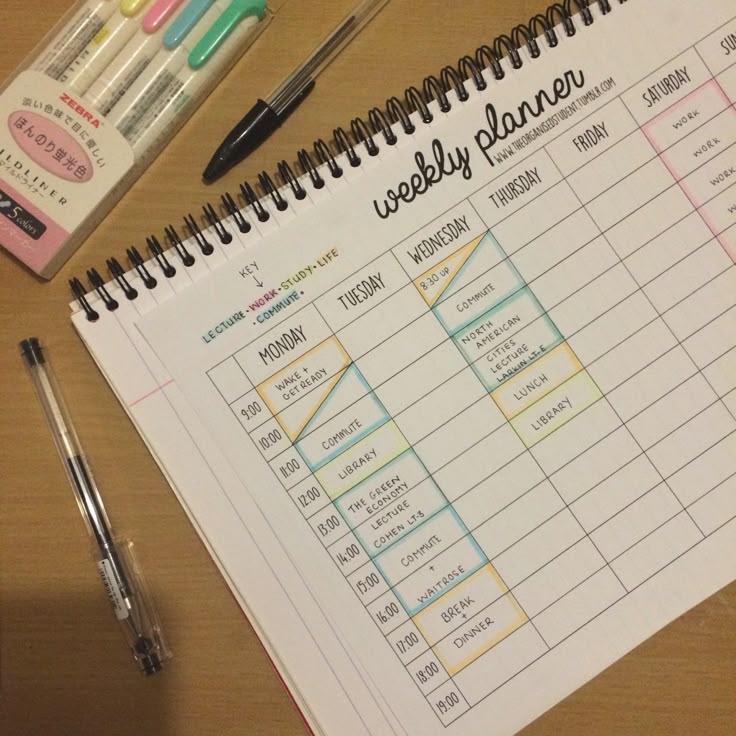 ZEBRA
淡い色で目に優しい
ほんのり蛍光色
ILDLINER
マイルドライナー
5 colors
weekly planner
WWW.THEORGANISEDSTUDENT.TUMBLR.COM
KEY
LECTURE · WORK · STUDY · LIFE
· COMMUTE ·
MONDAY
TUESDAY
WEDNESDAY
THURSDAY
FRIDAY
SATURDAY
SUN
9:00
10:00
11:00
12:00
13:00
14:00
15:00
16:00
17:00
18:00
19:00
WAKE +
GET READY
COMMUTE
LIBRARY
THE GREEN
ECONOMY
LECTURE
COHEN LT-B
COMMUTE
+
WAITROSE
BREAK
+
DINNER
8:30 UP
COMMUTE
NORTH
AMERICAN
CITIES
LECTURE
LARKIN LT.E
LUNCH
LIBRARY
WORK
WORK
WORK